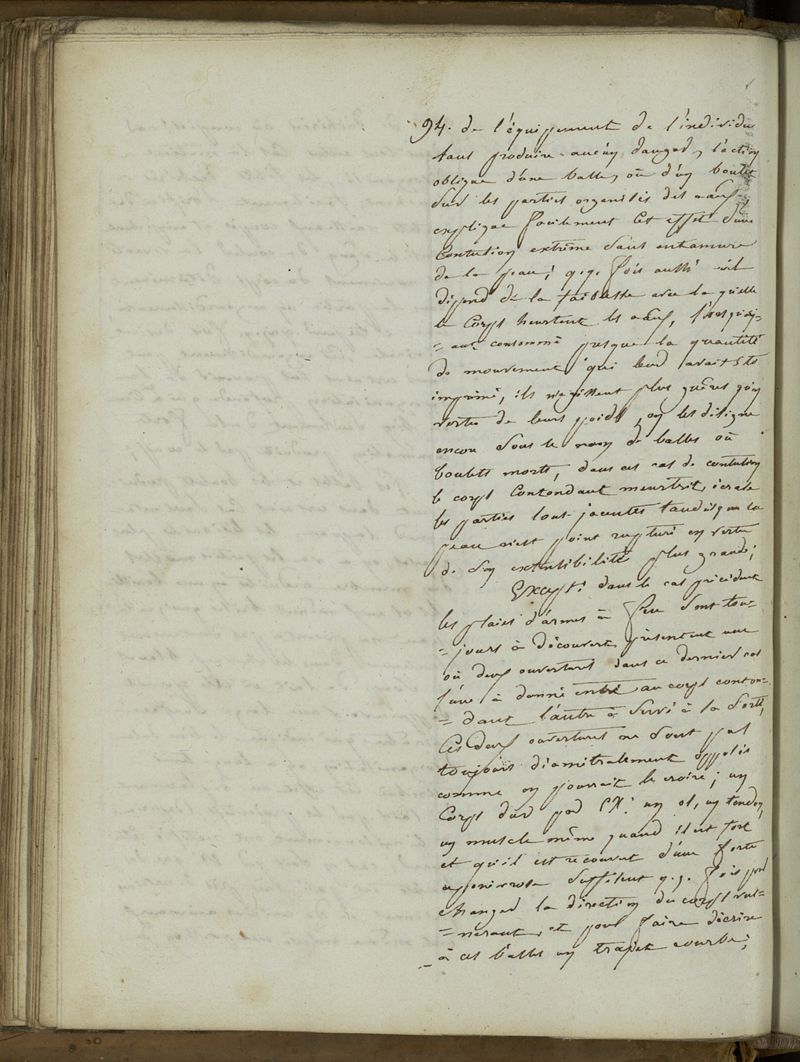 94. de l'équipement de l'individu
sans produire aucun danger, l'action
oblique d'une balle, où d'un boulet
sur les parties organisées des
explique facilement cet effet d'une
Contution extrême sans entamure
de la peau; q.q. fois aussi
dépend de la faiblesse avec laquelle
le Corps heurtent les
= ant consommé presque la quantité
de mouvement qui leur avait été
imprimé, ils n'agissent plus guères qu'en
vertu de leurs poids, on les désigne
encore sous le nom de balles où
boulets morts, dans ces cas de contution
le corps Contondant meurtrit, écrase
les parties sous jacentes tandis que la
peau n'est point rupturé en vertu
de son extensibilité plus grande;
Excepté dans le cas précédent
les plaies d'armes à feu sont tou-
= jours à découvert, présentent une
où deux ouvertures dans ce dernier cas
l'une à donné entré au corps conton-
= dant l'autre à servi à la sortie,
Ces deux ouvertures ne sont pas
toujours diamétralement opposés
comme on pourrait le croire; un
Corps dur par EX: un os, un tendon,
un muscle même quand il est fort
et qu'il est recouvert d'une forte
aponivrose suffisent q.q. fois pour
changer la direction du corps vul-
= nérant, et pour faire décrire
= à ces balles un trajet courbe;